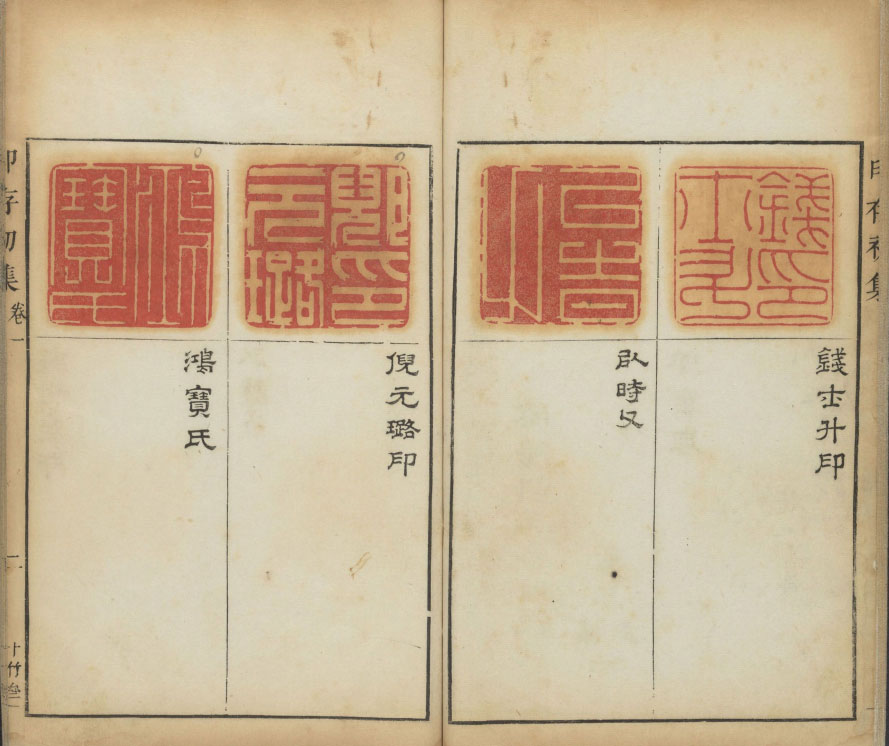 印存初集
錢士升印
時
倪元璐印
鴻寶氏
印存初集 卷一 二 十竹齋